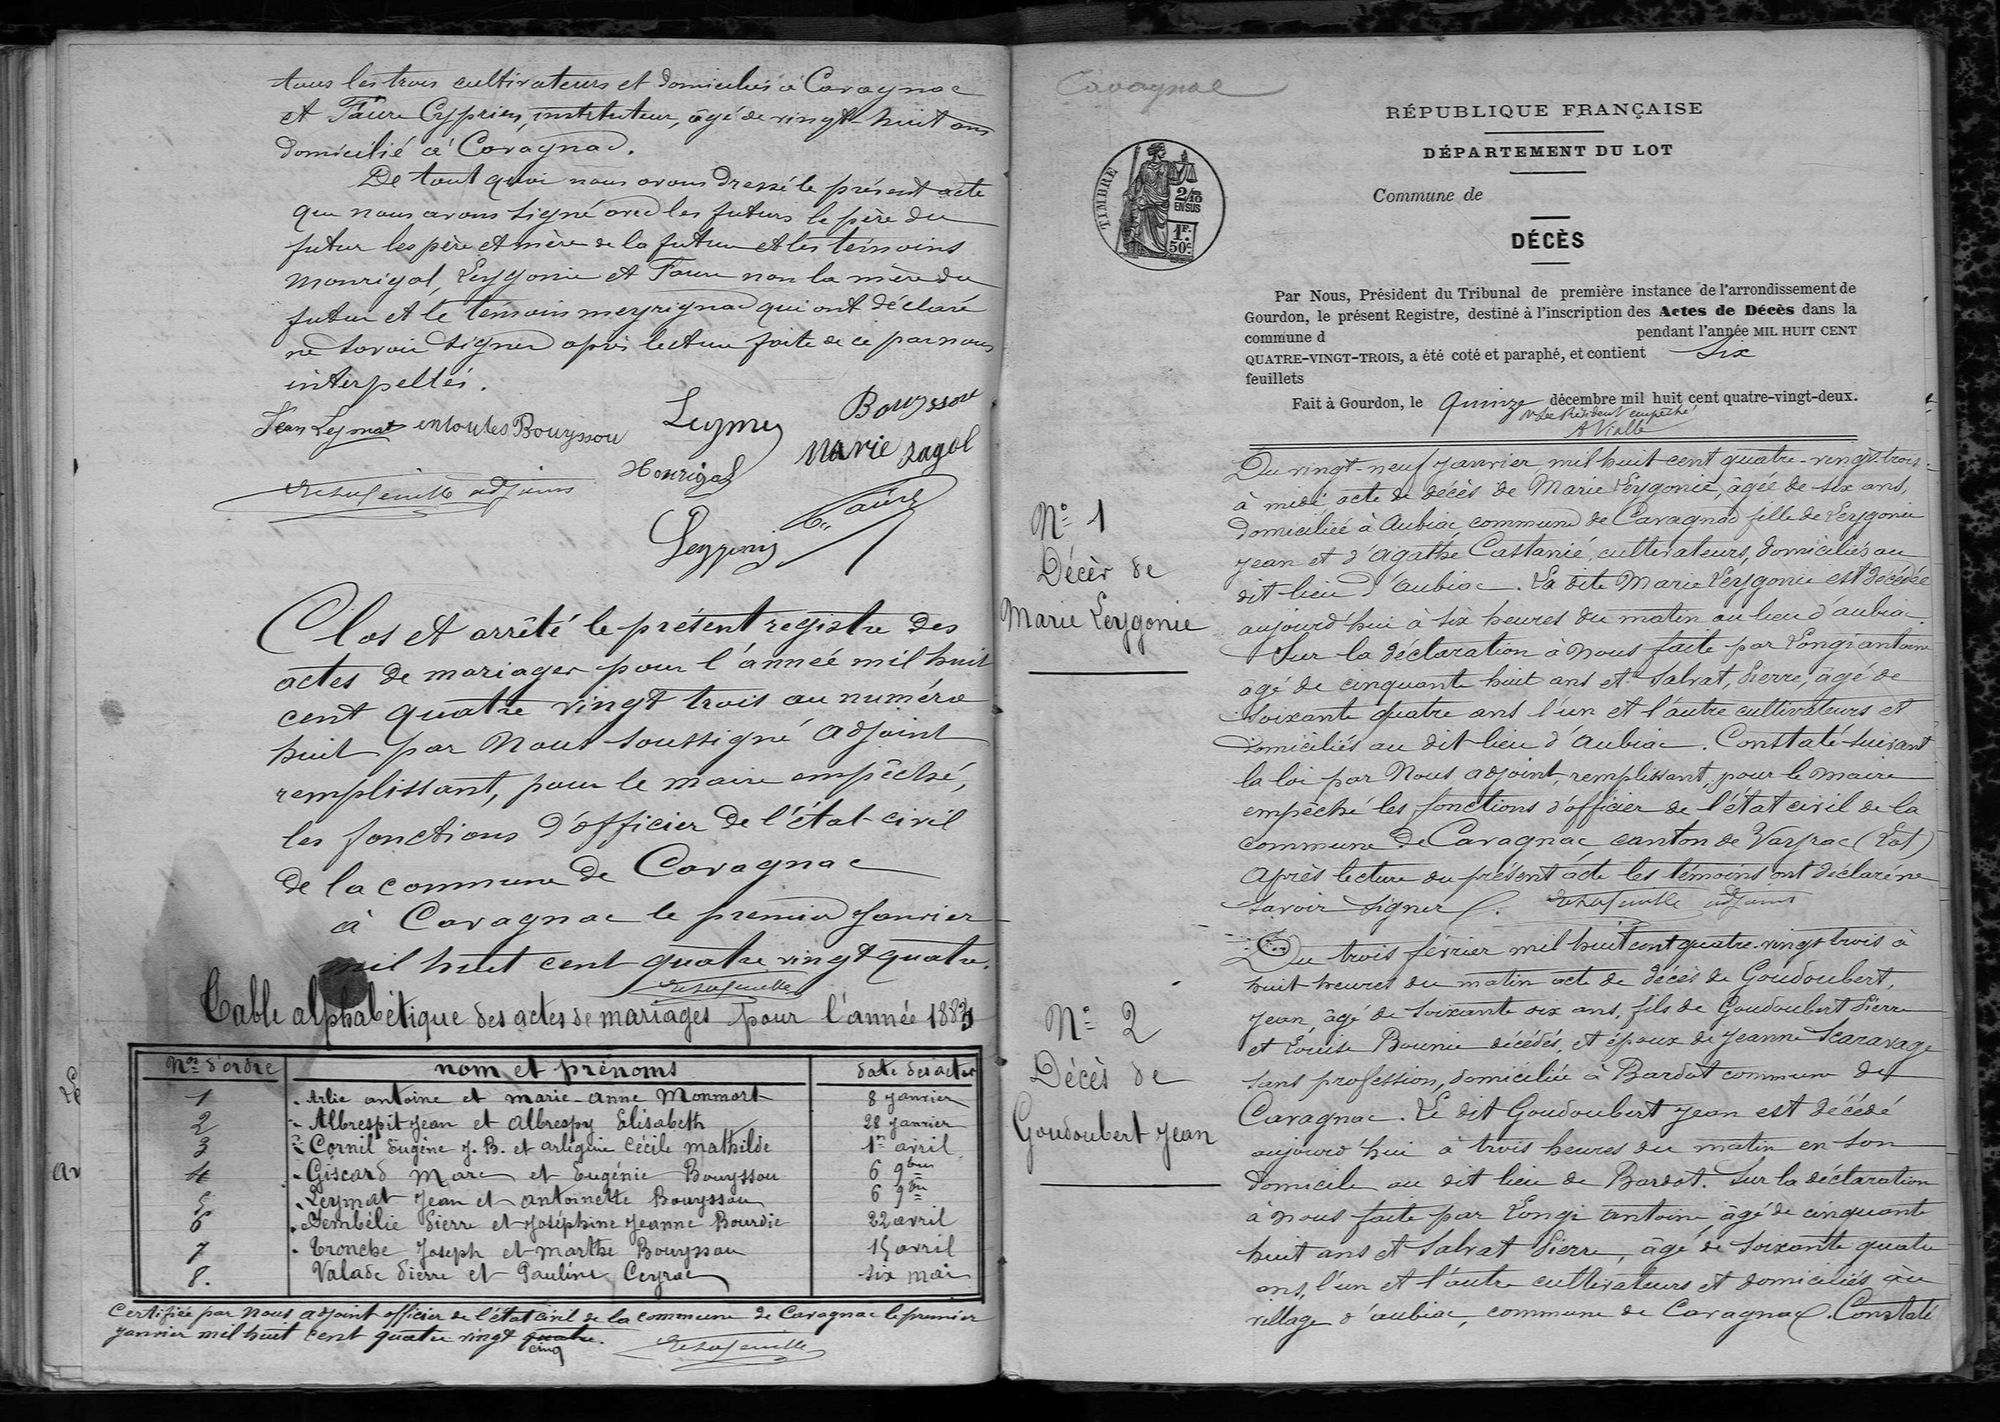 tous les trois cultivateurs et domiciliés à Cavagnac
et Faure Cyprien, instituteur, âgé de vingt-huit ans
domicilié à Cavagnac.
De tout quoi nous avons dressé le présent acte
que nous avons signé avec les futurs le père du
futur les père et mère de la future et les témoins
Mourigal, Leygonie et Faure non la mère du
futur et le témoin meyrignac qui ont déclaré
ne savoir signer après lecture faite de ce par nous
interpellés.
Jean Leymat entoutes Bouyssou Leymat Bouyssou
Mourigal Marie Ragol
adjoint
Leygonie C. Faure
Clos et arrêté le présent registre des
actes de mariages pour l'année mil huit
cent quatre vingt trois au numéro
huit par Nous soussigné adjoint
remplissant, pour le maire empêché,
les fonctions d'officier de l'état-civil
de la commune de Cavagnac
à Cavagnac le premier Janvier
mil huit cent quatre vingt quatre.
Table alphabétique des actes de mariages pour l'année 1883
Nos d'ordre nom et prénoms date des actes
1 Arlie antoine et marie-anne Monmart 8 janvier
2 Albrespit Jean et Albrespy Elisabeth 28 janvier
3 Cornil Eugène J. B. et arlegine Cécile mathilde 1er avril
4 Giscard Marc et Eugénie Bouyssou 6 9bre
5 Leymat Jean et antoinette Bouyssou 6 9bre
6 Jembélie Pierre et Joséphine Jeanne Bourdie 22 avril
7 Tronche Joseph et marthe Bouyssou 15 avril
8. Valade Pierre et Pauline Ceyrac six mai
Certifiée par Nous adjoint officier de l'état civil de la commune de Cavagnac le premier
janvier mil huit cent quatre vingt quatre.
cinq
Cavagnac
RÉPUBLIQUE FRANÇAISE
DÉPARTEMENT DU LOT
Commune de
TIMBRE
2/10
EN SUS
1F.
50c
DÉCÈS
Par Nous, Président du Tribunal de première instance de l'arrondissement de
Gourdon, le présent Registre, destiné à l'inscription des Actes de Décès dans la
commune d pendant l'année MIL HUIT CENT
QUATRE-VINGT-TROIS, a été coté et paraphé, et contient Six
feuillets
Fait à Gourdon, le Quinze décembre mil huit cent quatre-vingt-deux.
Le Président empêché
A Vialle
N° 1
Décès de
Marie Leygonie
Du vingt-neuf Janvier mil huit cent quatre-vingt-trois
à midi acte de décès de Marie Leygonie, âgée de six ans,
domiciliée à Aubiac commune de Cavagnac fille de Leygonie
Jean et d'Agathe Castanié cultivateurs, domiciliés au
dit lieu d'aubiac. La dite Marie Leygonie est décédée
aujourd'hui à six heures du matin au lieu d'aubiac.
Sur la déclaration à nous faite par Longi antoine
âgé de cinquante huit ans et Salvat, Pierre, âgé de
soixante quatre ans l'un et l'autre cultivateurs et
domiciliés au dit lieu d'Aubiac. Constaté suivant
la loi par Nous adjoint, remplissant, pour le maire
empêché les fonctions d'officier de l'état civil de la
commune de Cavagnac canton de Vayrac (Lot)
Après lecture du présent acte les témoins ont déclaré ne
savoir signer. adjoint
N° 2
Décès de
Goudoubert Jean
Du trois février mil huit cent quatre-vingt trois à
huit heures du matin acte de décès de Goudoubert,
Jean, âgé de soixante dix ans, fils de Goudoubert Pierre
et Louise Bounie décédés, et époux de Jeanne Scaravage
sans profession, domiciliée à Bardot commune de
Cavagnac. Le dit Goudoubert Jean est décédé
aujourd'hui à trois heures du matin en son
domicile au dit lieu de Bardot. Sur la déclaration
à nous faite par Longi Antoine, âgé de cinquante
huit ans et Salvat Pierre, âgé de soixante quatre
ans, l'un et l'autre cultivateurs et domiciliés au
village d'aubiac, commune de Cavagnac. Constaté